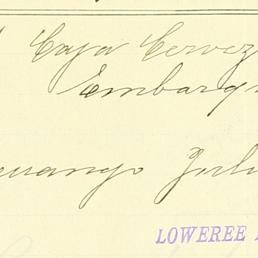 1 Caja Cervez
Embarq
uango Juli
LOWEREE